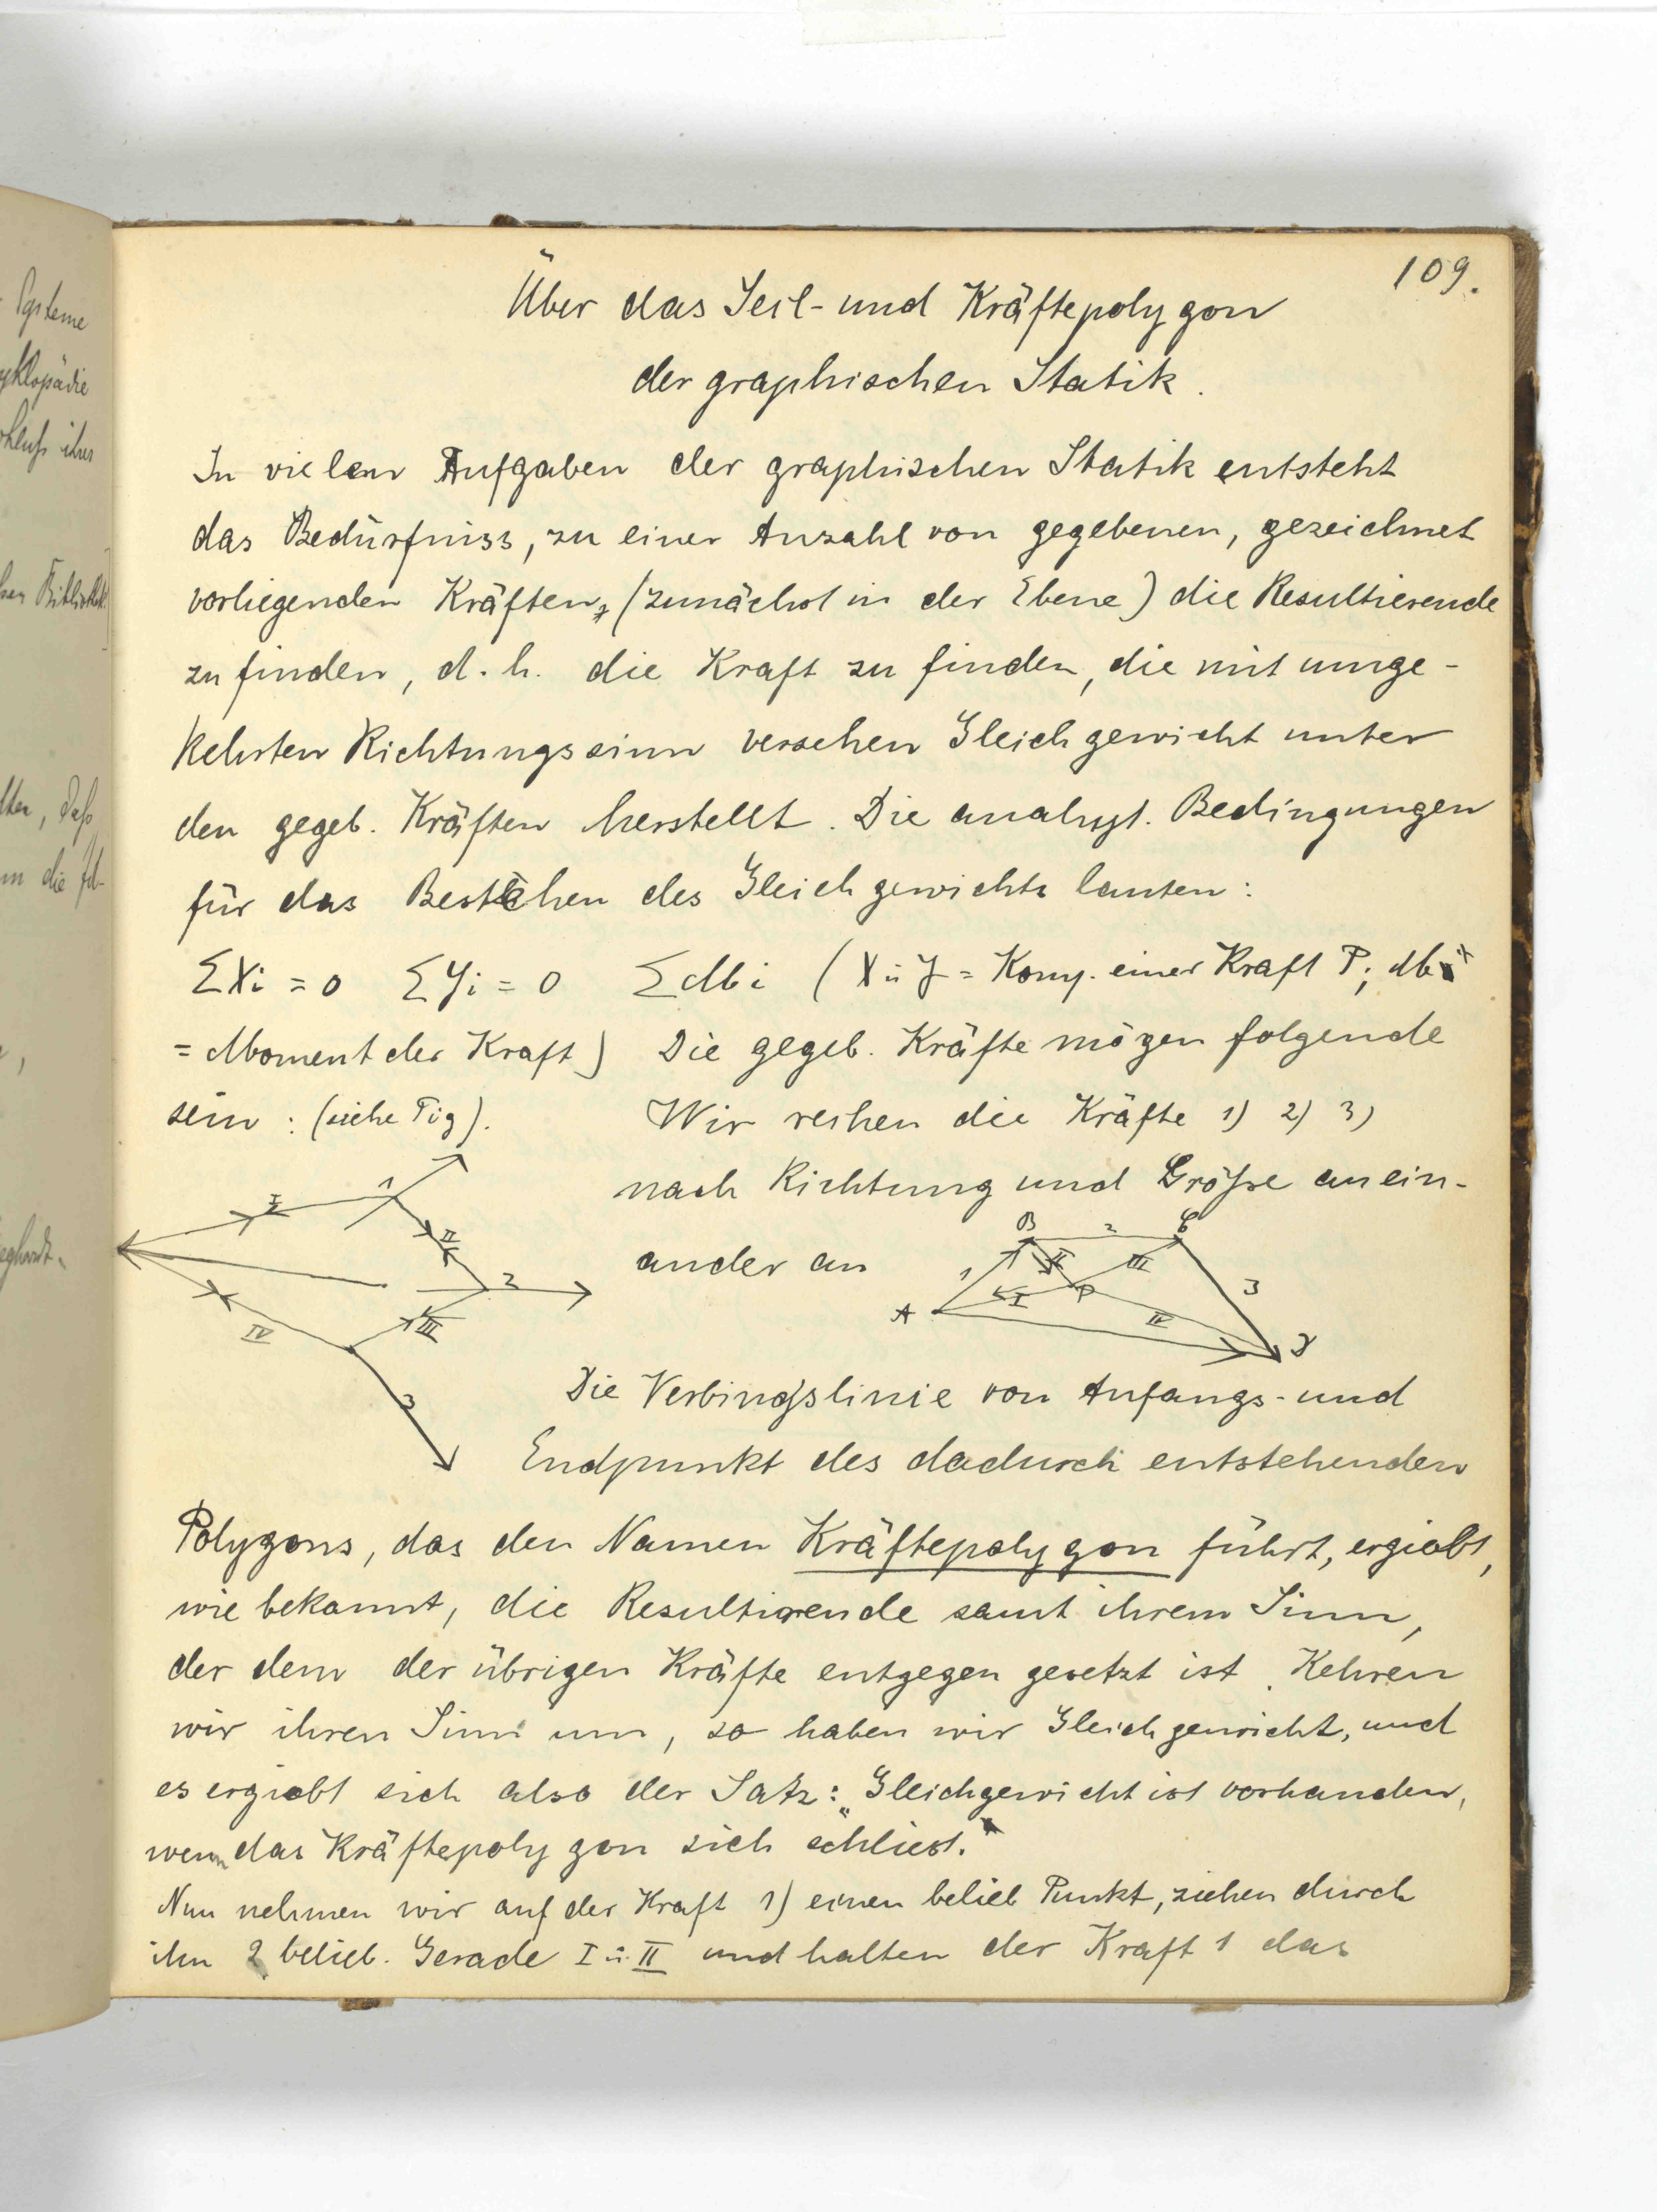 109.
Über das Seil- und Kräftepolygon
der graphischen Statik.
In vielen Aufgaben der graphischen Statik entsteht
das Bedürfniss, zu einer Anzahl von gegebenen, gezeichnet
vorliegenden Kräften, (zunächst in der Ebene) die Resultierende
zu finden, d. h. die Kraft zu finden, die mit umge-
kehrten Richtungssinn versehen Gleichgewicht unter
den gegeb. Kräften herstellt. Die analyt. Bedingungen
für das Bestehen des Gleichgewichts lauten:
ΣXi = 0 ΣYi = 0 ΣMi (X u. Y = Komp. einer Kraft P; M
= Moment der Kraft) Die gegeb. Kräfte mögen folgende
sein: (siehe Fig). Wir reihen die Kräfte 1) 2) 3)
nach Richtung und Größe anein-
ander an
1 I II 2 III IV 3
A B C D 1 2 3 I II III IV P
Die Verbindgslinie von Anfangs- und
Endpunkt des dadurch entstehenden
Polygons, das den Namen Kräftepolygon führt, ergiebt,
wie bekannt, die Resultierende samt ihrem Sinn,
der dem der übrigen Kräfte entgegen gesetzt ist. Kehren
wir ihren Sinn um, so haben wir Gleichgewicht, und
es ergiebt sich also der Satz: „Gleichgewicht ist vorhanden,
wenn das Kräftepolygon sich schliest.“
Nun nehmen wir auf der Kraft 1) einen belieb Punkt, ziehen durch
ihn 2 belieb. Gerade I u. II und halten der Kraft 1 das
Systeme
yklopädie
ihres
Bibliothek
daß
die